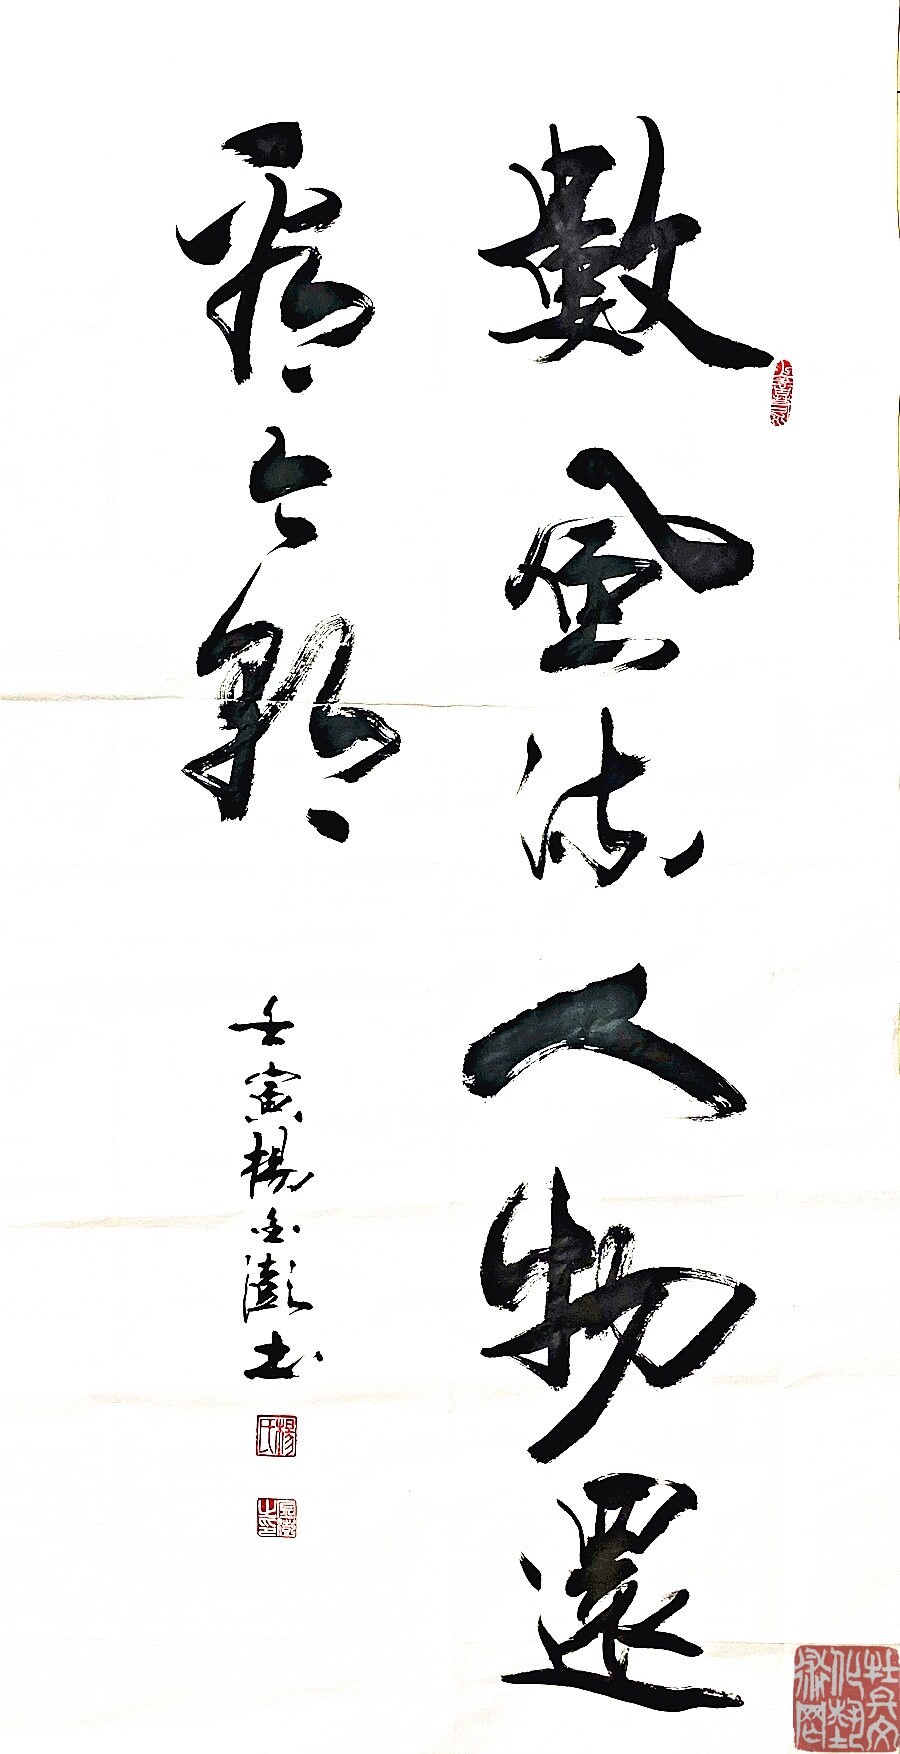 數風流人物還
看今朝
壬寅楊金澎書
楊氏